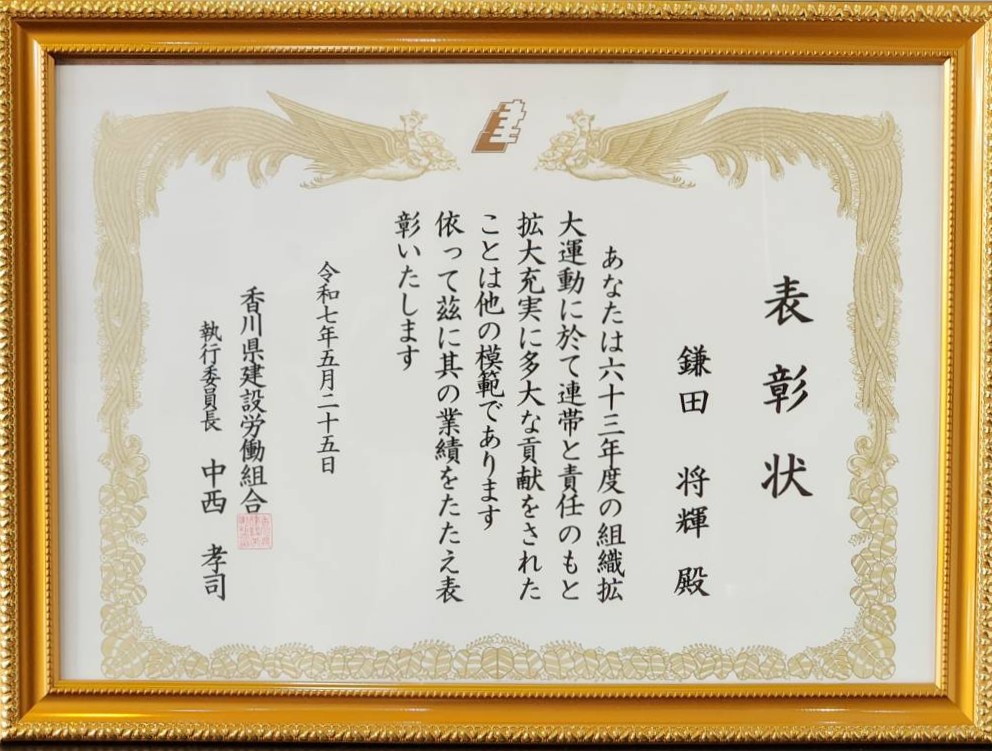 表彰状
鎌田 将輝 殿
あなたは六十三年度の組織拡
大運動に於て連帯と責任のもと
拡大充実に多大な貢献をされた
ことは他の模範であります
依って茲に其の業績をたたえ表
彰いたします
令和七年五月二十五日
香川県建設労働組合
執行委員長 中西 孝司